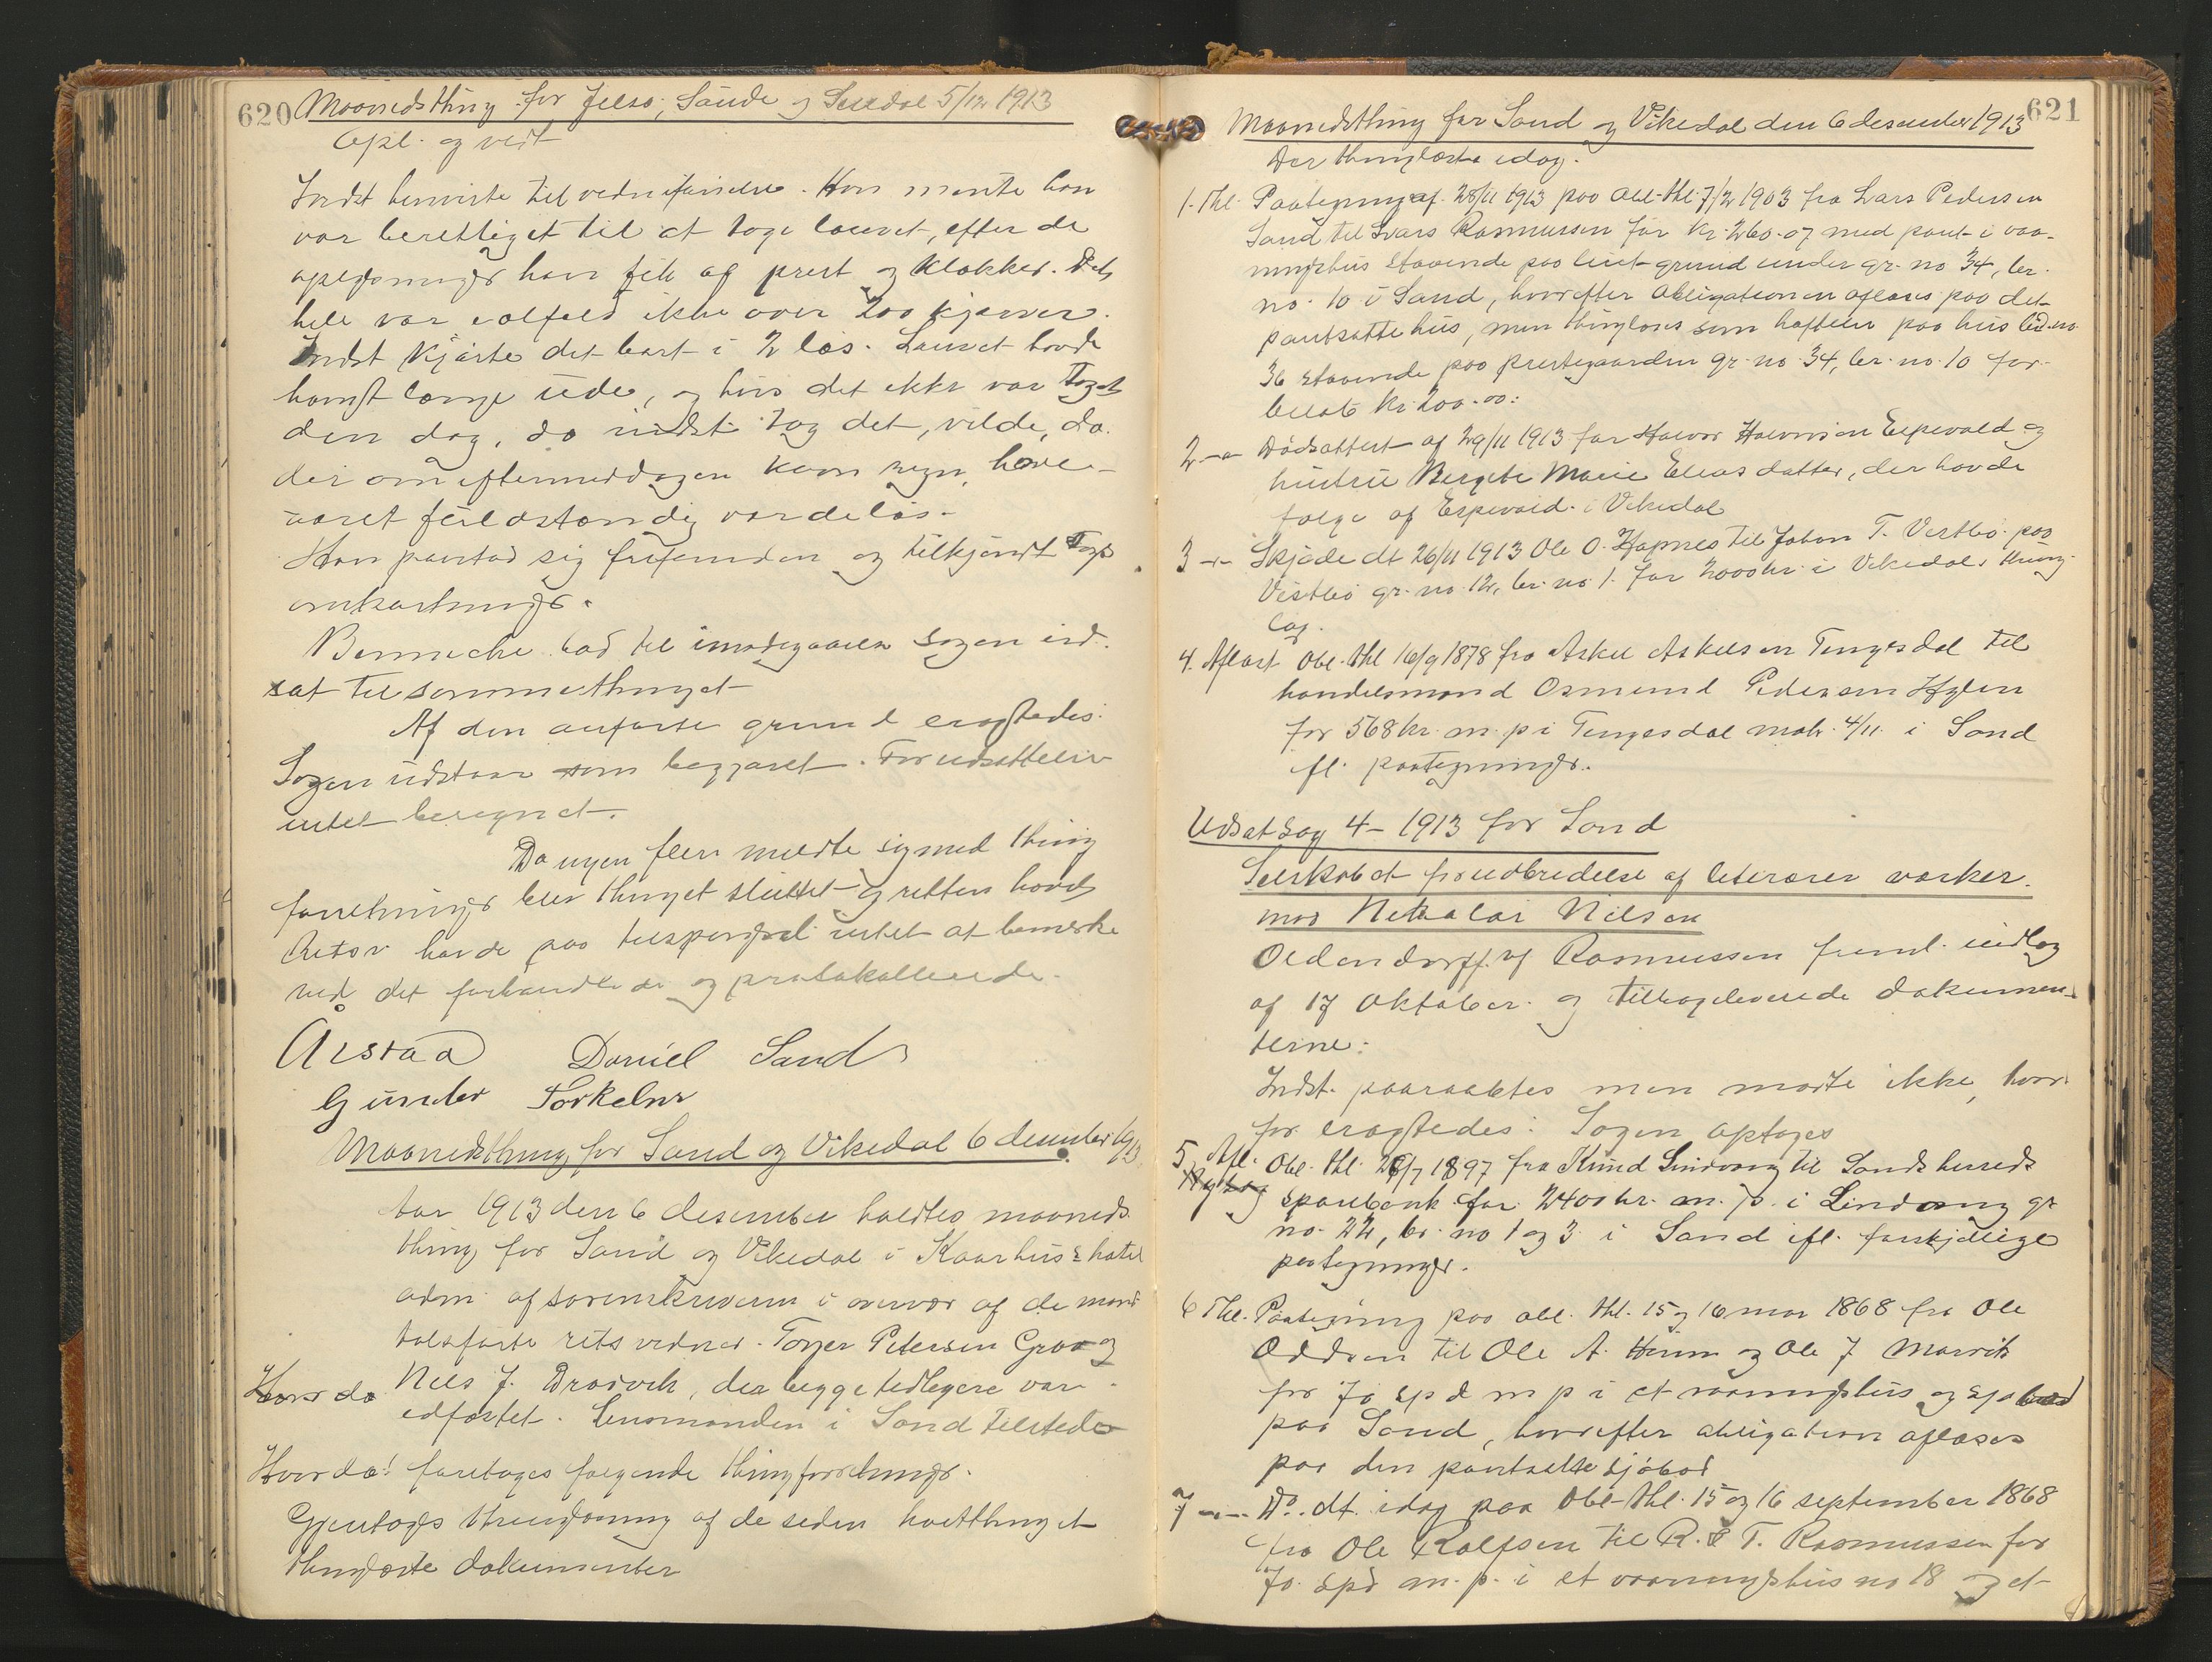 620 Maanedsthing for Jelsø, Sande og Suldal 5/12 1913
opl. og vist
Indst henviste til vedn forseelse. Han mente han
var berettiget til at tage lauvet, efter de
oplysninger han fik af prest og klokker. Det
hele var ialfald ikke over 200 kjerver.
Indst kjørte det bort i 2 lös. Lauvet havde
hangt længe ude, og hvis det ikke var taget
den dag, da indst tog det, vilde, da
der om eftermiddagen kom regn, have
været fuldstændig værdeløs.
Han paastod sig frifunden og tilkjendt sags
omkostninger.
Benneche bad til imødegaaelse sagen ud
sat til sommerthinget
Af den anførte grund eragtedes:
Sagen udstaar som begjæret. For udsættelsen
intet beregnet.
Da ingen flere meldte sig med thing
forretninger blev thinget sluttet og rettens hævet
Actor havde paa tilspørgsel intet at bemerke
ved det forhandlede og protokollerede.
Aarstad Daniel Sand
Gunder Torkelsen
Maanedsthing for Sand og Vikedal 6 desember 1913
Aar 1913 den 6 desember holdtes maaneds
thing for Sand og Vikedal i Kaarhus's hotel
adm. af sorenskriveren i overvær af de mand
talsførte rets vedner Torger Petersen Graae og
Nils J. Draavik, der begge tidligere var
edfæstet. Lensmanden i Sand tilstede
Hvor da
Hvor da! foretoges følgende thingforretninger.
Gjentoges thinglæsning af de siden høstthinget
thinglæste dokumenter
621
Maanedsthing for Sand og Vikedal den 6 desember 1913
Der thinglæste idag.
1. Thl. Paategning af 28/11 1913 paa Obl. thl. 7/2 1903 fra Lars Pedersen
Sand til Lars Rasmussen for kr. 260.07 med pant i vaa-
ningshus staaende paa leiet grund under gr. no 34, br.
no. 10 i Sand, hvorefter obligationen aflæses paa det
pantsatte hus, men thinglæses som heftelse paa hus led. no.
36 staaende paa prestegaarden gr. no. 34, br. no. 10 for
beløb kr. 200.00:
2 -"- Dødsattest af 29/11 1913 for Halvor Halvorsen Espevold og
hustru Bergete Marie Eliasdatter, der havde
følge af Espevold i Vikedal
3 -"- Skjøde dt 26/11 1913 Ole O. Hapnes til Johan T. Vestbø paa
Vestbø gr. no. 12, br. no. 1. for 2000 kr. i Vikedals thing
lag.
4. Aflæst Obl. thl 16/9 1878 fra Askel Askelsen Tengesdal til
handelsmand Osmund Pedersen Hylen
for 568 kr. m. p i Tengesdal matr. 4/11 i Sand
fl. paategninger.
Udsat sag 4 - 1913 for Sand
Selskabet for udbredelse af literære værker.
mod Nikolai Nilsen
Oldendorff af Rasmussen freml. indlæg
af 17 oktober og tilbageleverede dokumen-
terne:
Indst. paaraabtes men mødte ikke, hvor
for eragtedes: Sagen optages
5. Afl. Obl. thl. 26/7 1897 fra Knud Lindvang til Sands herreds
sparebank for 2400 kr. m. p. i Lindvang gr
no. 22, br. no 1 og 3 i Sand ifl. forskjellige
paategninger.
6 Thl. Paategning paa obl. thl. 15 og 16 mar 1868 fra Ole
Oddsen til Ole A. Heim og Ole J. Marvik
for 70 spd m p i et vaaningshus og sjøbod
paa Sand, hvorefter obligation aflæses
paa den pantsatte sjøbod
7 -"- Do. dt. idag paa Obl. thl. 15 og 16 september 1868
fra Ole Rolfsen til R. & T. Rasmussen for
70 spd m. p. i et vaaningshus no 18 og et